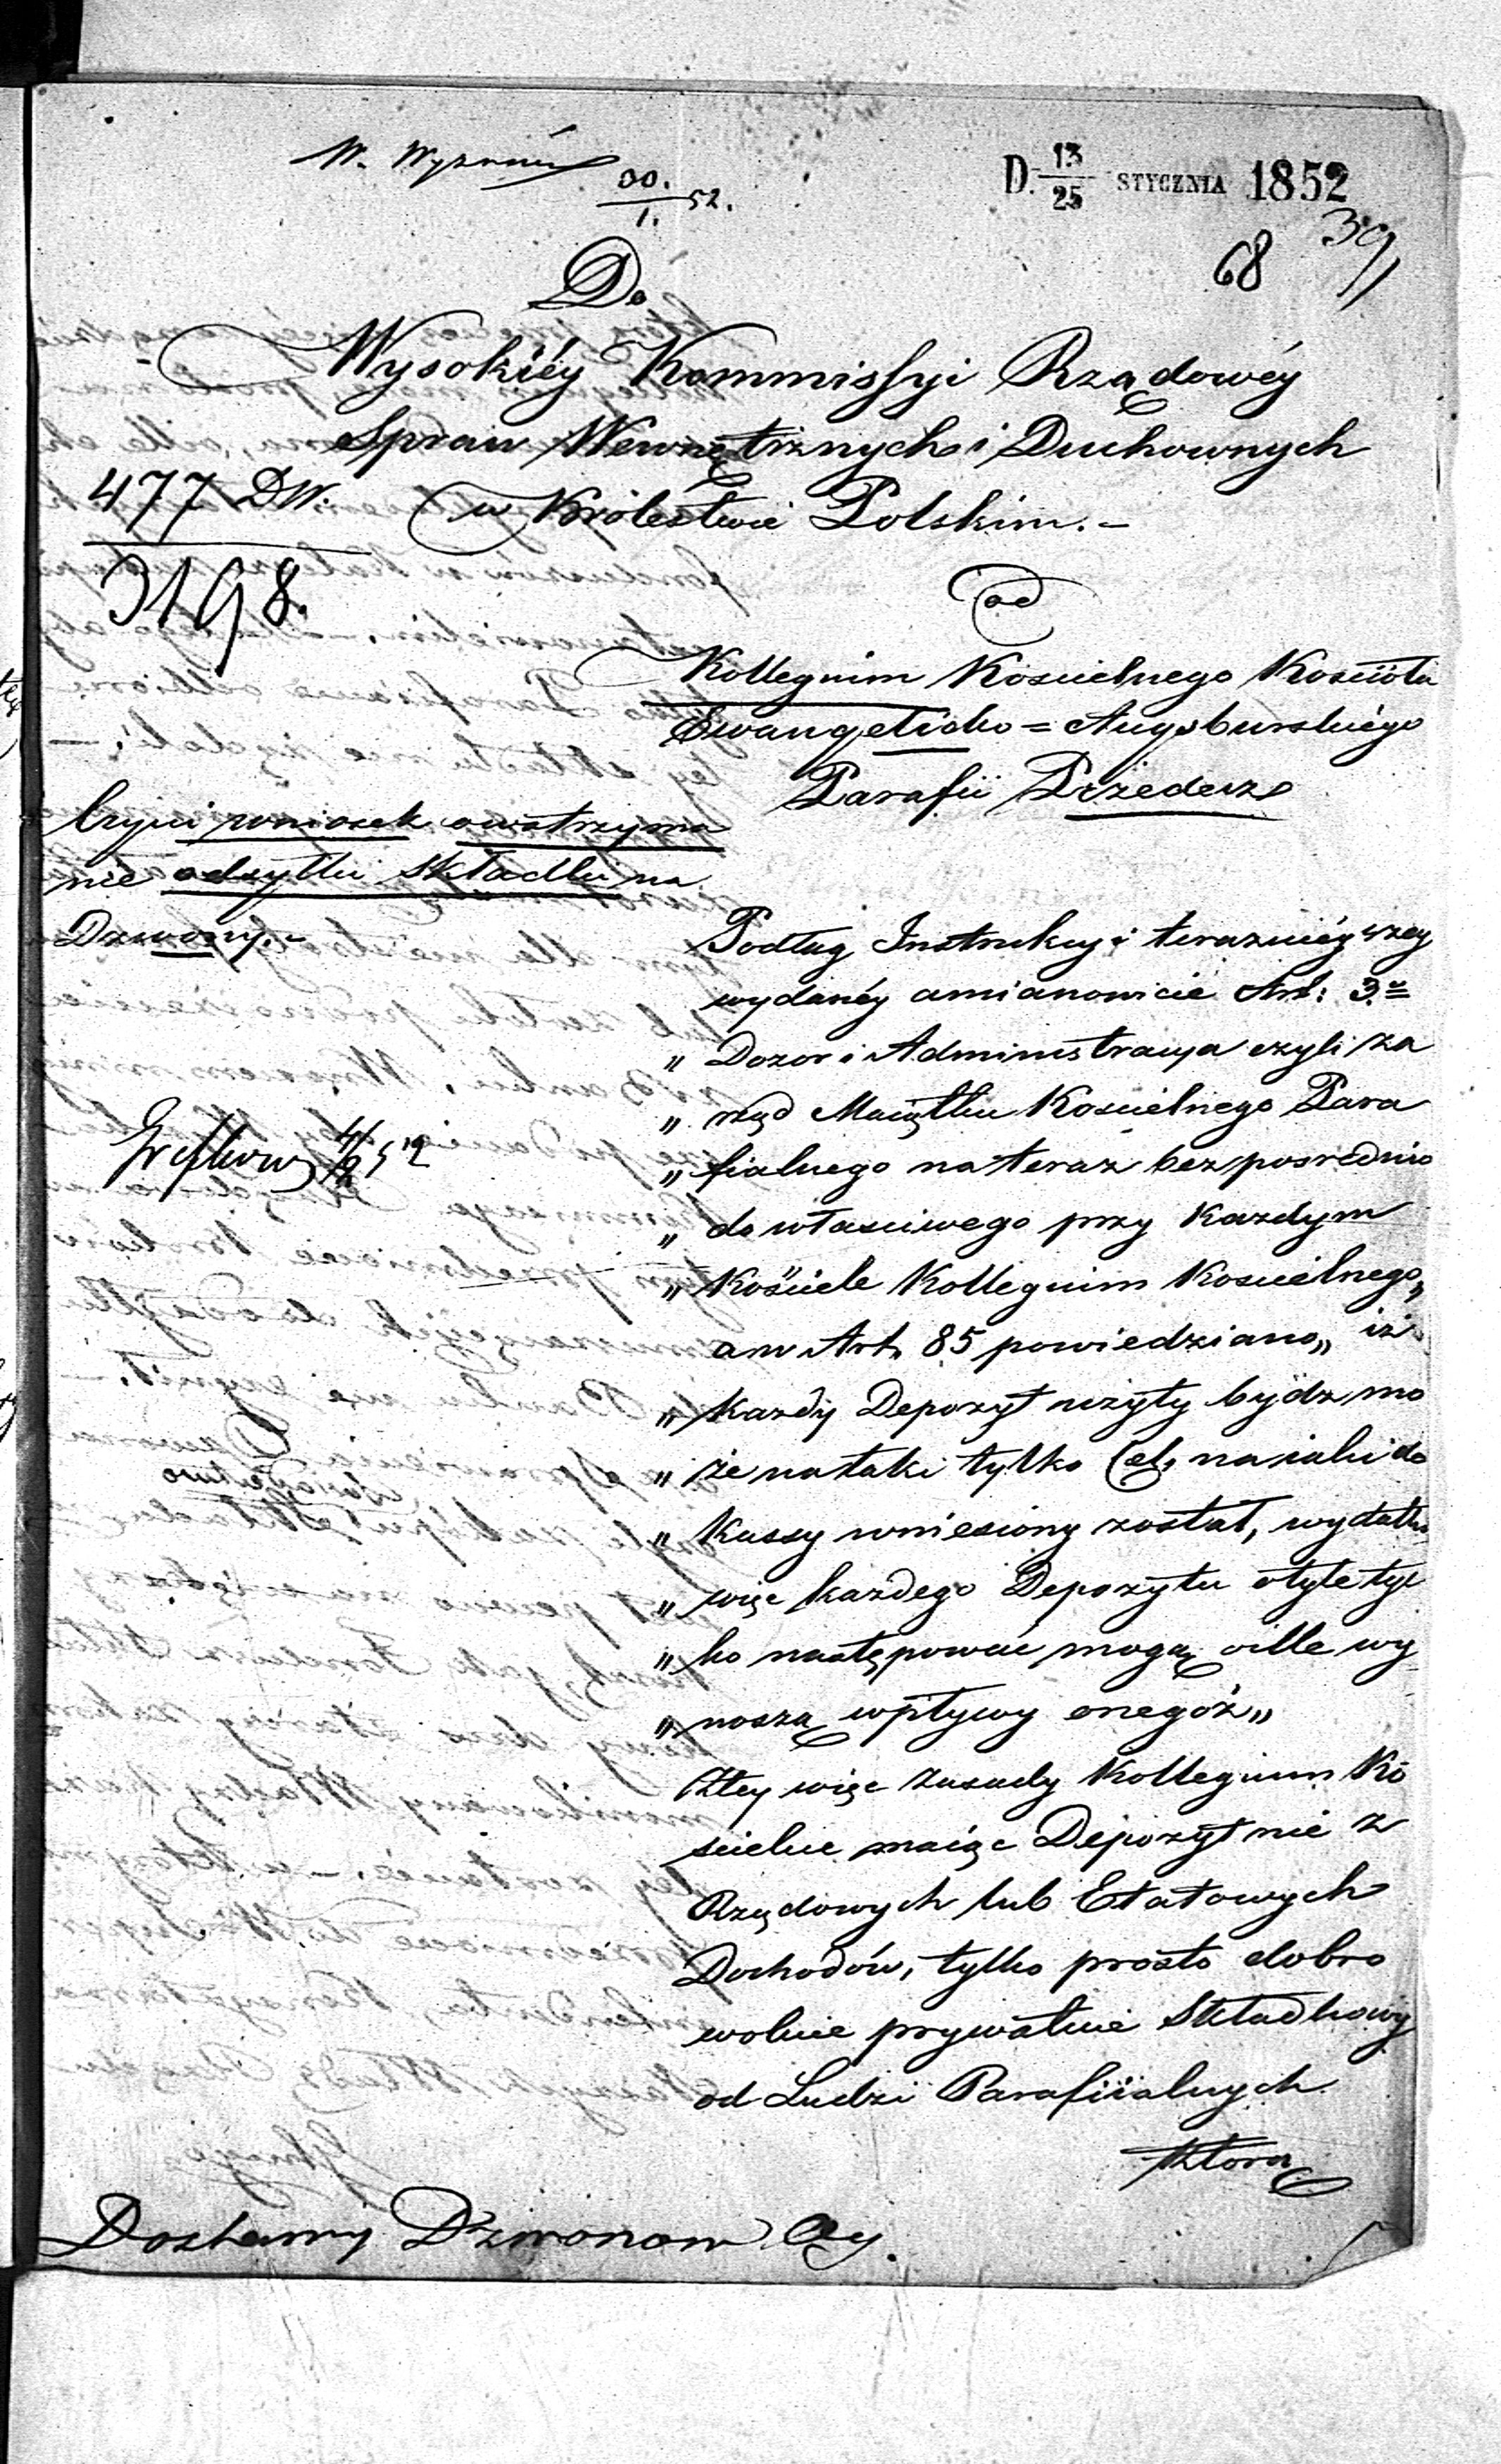 D. 13/25 STYCZNIA 1852
30./1. 52.
68 39
Do
Wysokiéy Kommissyi Rządowéy
Spraw Wewnętrznych i Duchownych
w Królestwie Polskim.-
477 DW.
3198.
od
Kollegium Koscielnego Kościoła
Ewangelicko = Augsburskiégo
Parafii Przedecz
Czyni wniosek o wstrzyma
nie odsyłki składki na
Dzwony.-
Podług Instrukcyi teraznieyszey
wydanéy amianowicie Art: 3.
" Dozor i Administracya czyli za
" rząd Maiątku Koscielnego Para
" fialnego na teraz bezposrednio
" do własciwego przy Kazdym
" Kościele Kollegium Koscielnego,,
a w Art. 85 powiedziano,, iż
" Kazdy Depozyt użyty bydz mo
" że na taki tylko Cel, na iaki do
" Kassy wniesiony został, wydatki
" więc każdego Depozytu o tyle tyl
" ko następować mogą, o ille wy
" noszą wpływy onegoż,,
Z tey więc zasady Kollegium Ko
scielne maiąc Depozyt nie z
Rządowych lub Etatowych
Dochodów, tylko prosto dobro
wolnie prywatnie Składkowy
od Ludzi Parafiialnych
Ktora
4/2 52
Dostawy Dzwonow